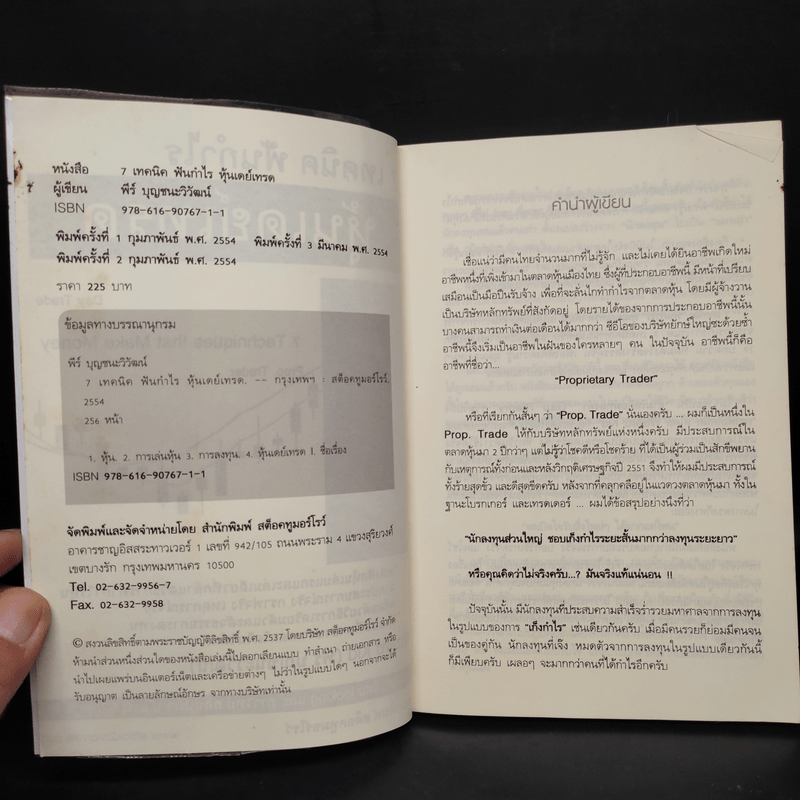 หนังสือ 7 เทคนิค ฟันกำไร หุ้นเดย์เทรด
ผู้เขียน พีร์ บุญชนะวิวัฒน์
ISBN 978-616-90767-1-1
พิมพ์ครั้งที่ 1 กุมภาพันธ์ พ.ศ. 2554 พิมพ์ครั้งที่ 3 มีนาคม พ.ศ. 2554
พิมพ์ครั้งที่ 2 กุมภาพันธ์ พ.ศ. 2554
ราคา 225 บาท
ข้อมูลทางบรรณานุกรม
พีร์ บุญชนะวิวัฒน์
7 เทคนิค ฟันกำไร หุ้นเดย์เทรด. -- กรุงเทพฯ : สต็อคทูมอร์โรว์,
2554
256 หน้า
1. หุ้น. 2. การเล่นหุ้น 3. การลงทุน. 4. หุ้นเดย์เทรด I. ชื่อเรื่อง
ISBN 978-616-90767-1-1
จัดพิมพ์และจัดจำหน่ายโดย สำนักพิมพ์ สต็อคทูมอร์โรว์
อาคารชาญอิสสระทาวเวอร์ 1 เลขที่ 942/105 ถนนพระราม 4 แขวงสุริยวงศ์
เขตบางรัก กรุงเทพมหานคร 10500
Tel. 02-632-9956-7
Fax. 02-632-9958
© สงวนลิขสิทธิ์ตามพระราชบัญญัติลิขสิทธิ์ พ.ศ. 2537 โดยบริษัท สต็อคทูมอร์โรว์ จำกัด
ห้ามนำส่วนหนึ่งส่วนใดของหนังสือเล่มนี้ไปลอกเลียนแบบ ทำสำเนา ถ่ายเอกสาร หรือ
นำไปเผยแพร่บนอินเตอร์เน็ตและเครือข่ายต่างๆ ไม่ว่าในรูปแบบใดๆ นอกจากจะได้
รับอนุญาต เป็นลายลักษณ์อักษร จากทางบริษัทเท่านั้น
คำนำผู้เขียน
เชื่อแน่ว่ามีคนไทยจำนวนมากที่ไม่รู้จัก และไม่เคยได้ยินอาชีพเกิดใหม่
อาชีพหนึ่งที่เพิ่งเข้ามาในตลาดหุ้นเมืองไทย ซึ่งผู้ที่ประกอบอาชีพนี้ มีหน้าที่เปรียบ
เสมือนเป็นมือปืนรับจ้าง เพื่อที่จะลั่นไกทำกำไรจากตลาดหุ้น โดยมีผู้จ้างวาน
เป็นบริษัทหลักทรัพย์ที่สังกัดอยู่ โดยรายได้ของจากการประกอบอาชีพนี้นั้น
บางคนสามารถทำเงินต่อเดือนได้มากกว่า ซีอีโอของบริษัทยักษ์ใหญ่ซะด้วยซ้ำ
อาชีพนี้จึงเริ่มเป็นอาชีพในฝันของใครหลายๆ คน ในปัจจุบัน อาชีพนี้ก็คือ
อาชีพที่ชื่อว่า...
"Proprietary Trader"
หรือที่เรียกกันสั้นๆ ว่า "Prop. Trade" นั่นเองครับ ... ผมก็เป็นหนึ่งใน
Prop. Trade ให้กับบริษัทหลักทรัพย์แห่งหนึ่งครับ มีประสบการณ์ใน
ตลาดหุ้นมา 2 ปีกว่าๆ แต่ไม่รู้ว่าโชคดีหรือโชคร้าย ที่ได้เป็นผู้ร่วมเป็นสักขีพยาน
กับเหตุการณ์ทั้งก่อนและหลังวิกฤติเศรษฐกิจปี 2551 จึงทำให้ผมมีประสบการณ์
ทั้งร้ายสุดขั้ว และดีสุดขีดครับ หลังจากที่คลุกคลีอยู่ในแวดวงตลาดหุ้นมา ทั้งใน
ฐานะโบรกเกอร์ และเทรดเดอร์ ... ผมได้ข้อสรุปอย่างนึงที่ว่า
"นักลงทุนส่วนใหญ่ ชอบเก็งกำไรระยะสั้นมากกว่าลงทุนระยะยาว"
หรือคุณคิดว่าไม่จริงครับ...? มันจริงแท้แน่นอน !!
ปัจจุบันนั้น มีนักลงทุนที่ประสบความสำเร็จร่ำรวยมหาศาลจากการลงทุน
ในรูปแบบของการ "เก็งกำไร" เช่นเดียวกันครับ เมื่อมีคนรวยก็ย่อมมีคนจน
เป็นของคู่กัน นักลงทุนที่เจ๊ง หมดตัวจากการลงทุนในรูปแบบเดียวกันนี้
ก็มีเพียบครับ เผลอๆ จะมากกว่าคนที่ได้กำไรอีกครับ